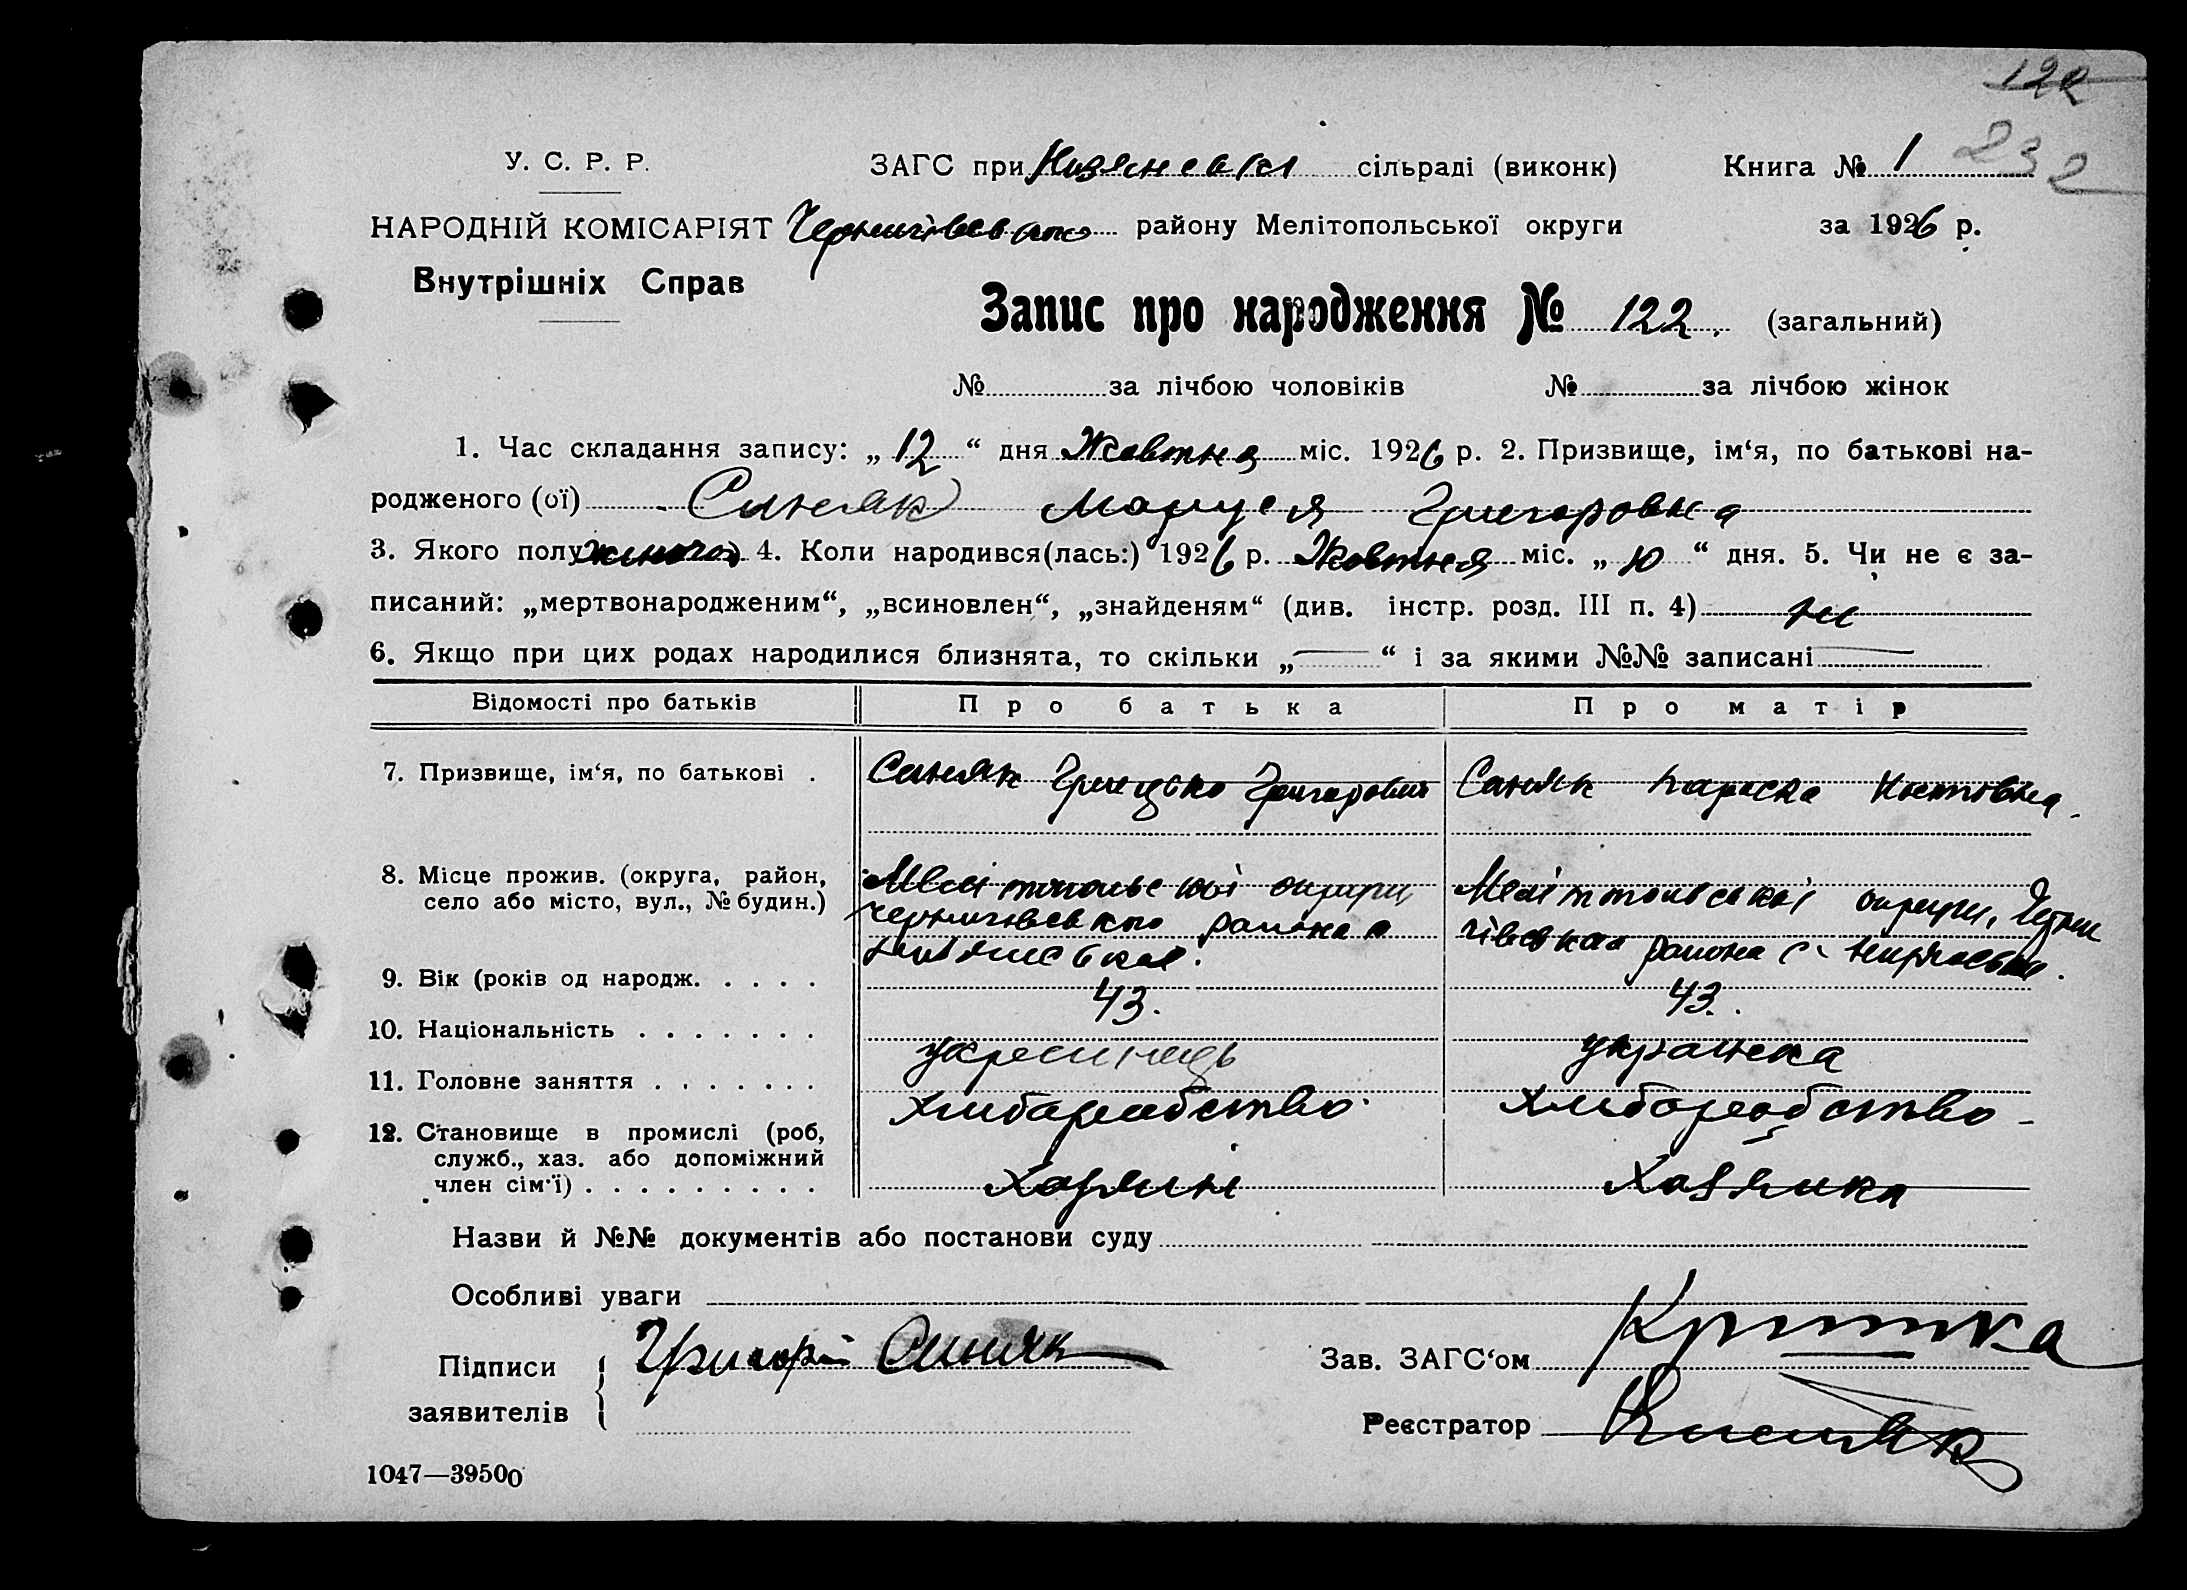 122
232
У. С. Р. Р. ЗАГС при сільраді (виконк) Книга № 1
НАРОДНІЙ КОМІСАРІЯТ Чернигівсько району Мелітопольської округи за 1926 р.
Внутрішніх Справ
Запис про народження № 122. (загальний)
№ за лічбою чоловіків № за лічбою жінок
1. Час складання запису: „ 12 “ дня Жовтня міс. 1926 р. 2. Призвище, ім‘я, по батькові на-
родженого (ої) Синяк Маруся Григоровна
3. Якого полу жіночої 4. Коли народився(лась:) 1926 р. Жовтня міс. „ 10 “ дня. 5. Чи не є за-
писаний: „мертвонародженим“, „всиновлен“, „знайденям“ (див. інстр. розд. III п. 4) ні
6. Якщо при цих родах народилися близнята, то скільки „ — “ і за якими №№ записані —
Відомості про батьків Про батька Про матір
7. Призвище, ім‘я, по батькові . Синяк Грицько Григорович Синяк Параска Костовна.
8. Місце прожив. (округа, район, Мелітопольської округи Мелітопольської округи, Черни
село або місто, вул., № будин.) Чернигівсько района с гівська района с.
9. Вік (років од народж. . . . . 43. 43.
10. Національність . . . . . . . украинець украінка
11. Головне заняття . . . . . . . хлибаробство хлибаробство
12. Становище в промислі (роб,
служб., хаз. або допоміжний
член сім‘ї) . . . . . . . . . Хазяин Хазяика
Назви й №№ документів або постанови суду
Особливі уваги
Підписи Григорі Синяк Зав. ЗАГС‘ом
заявителів Реєстратор
1047—39500